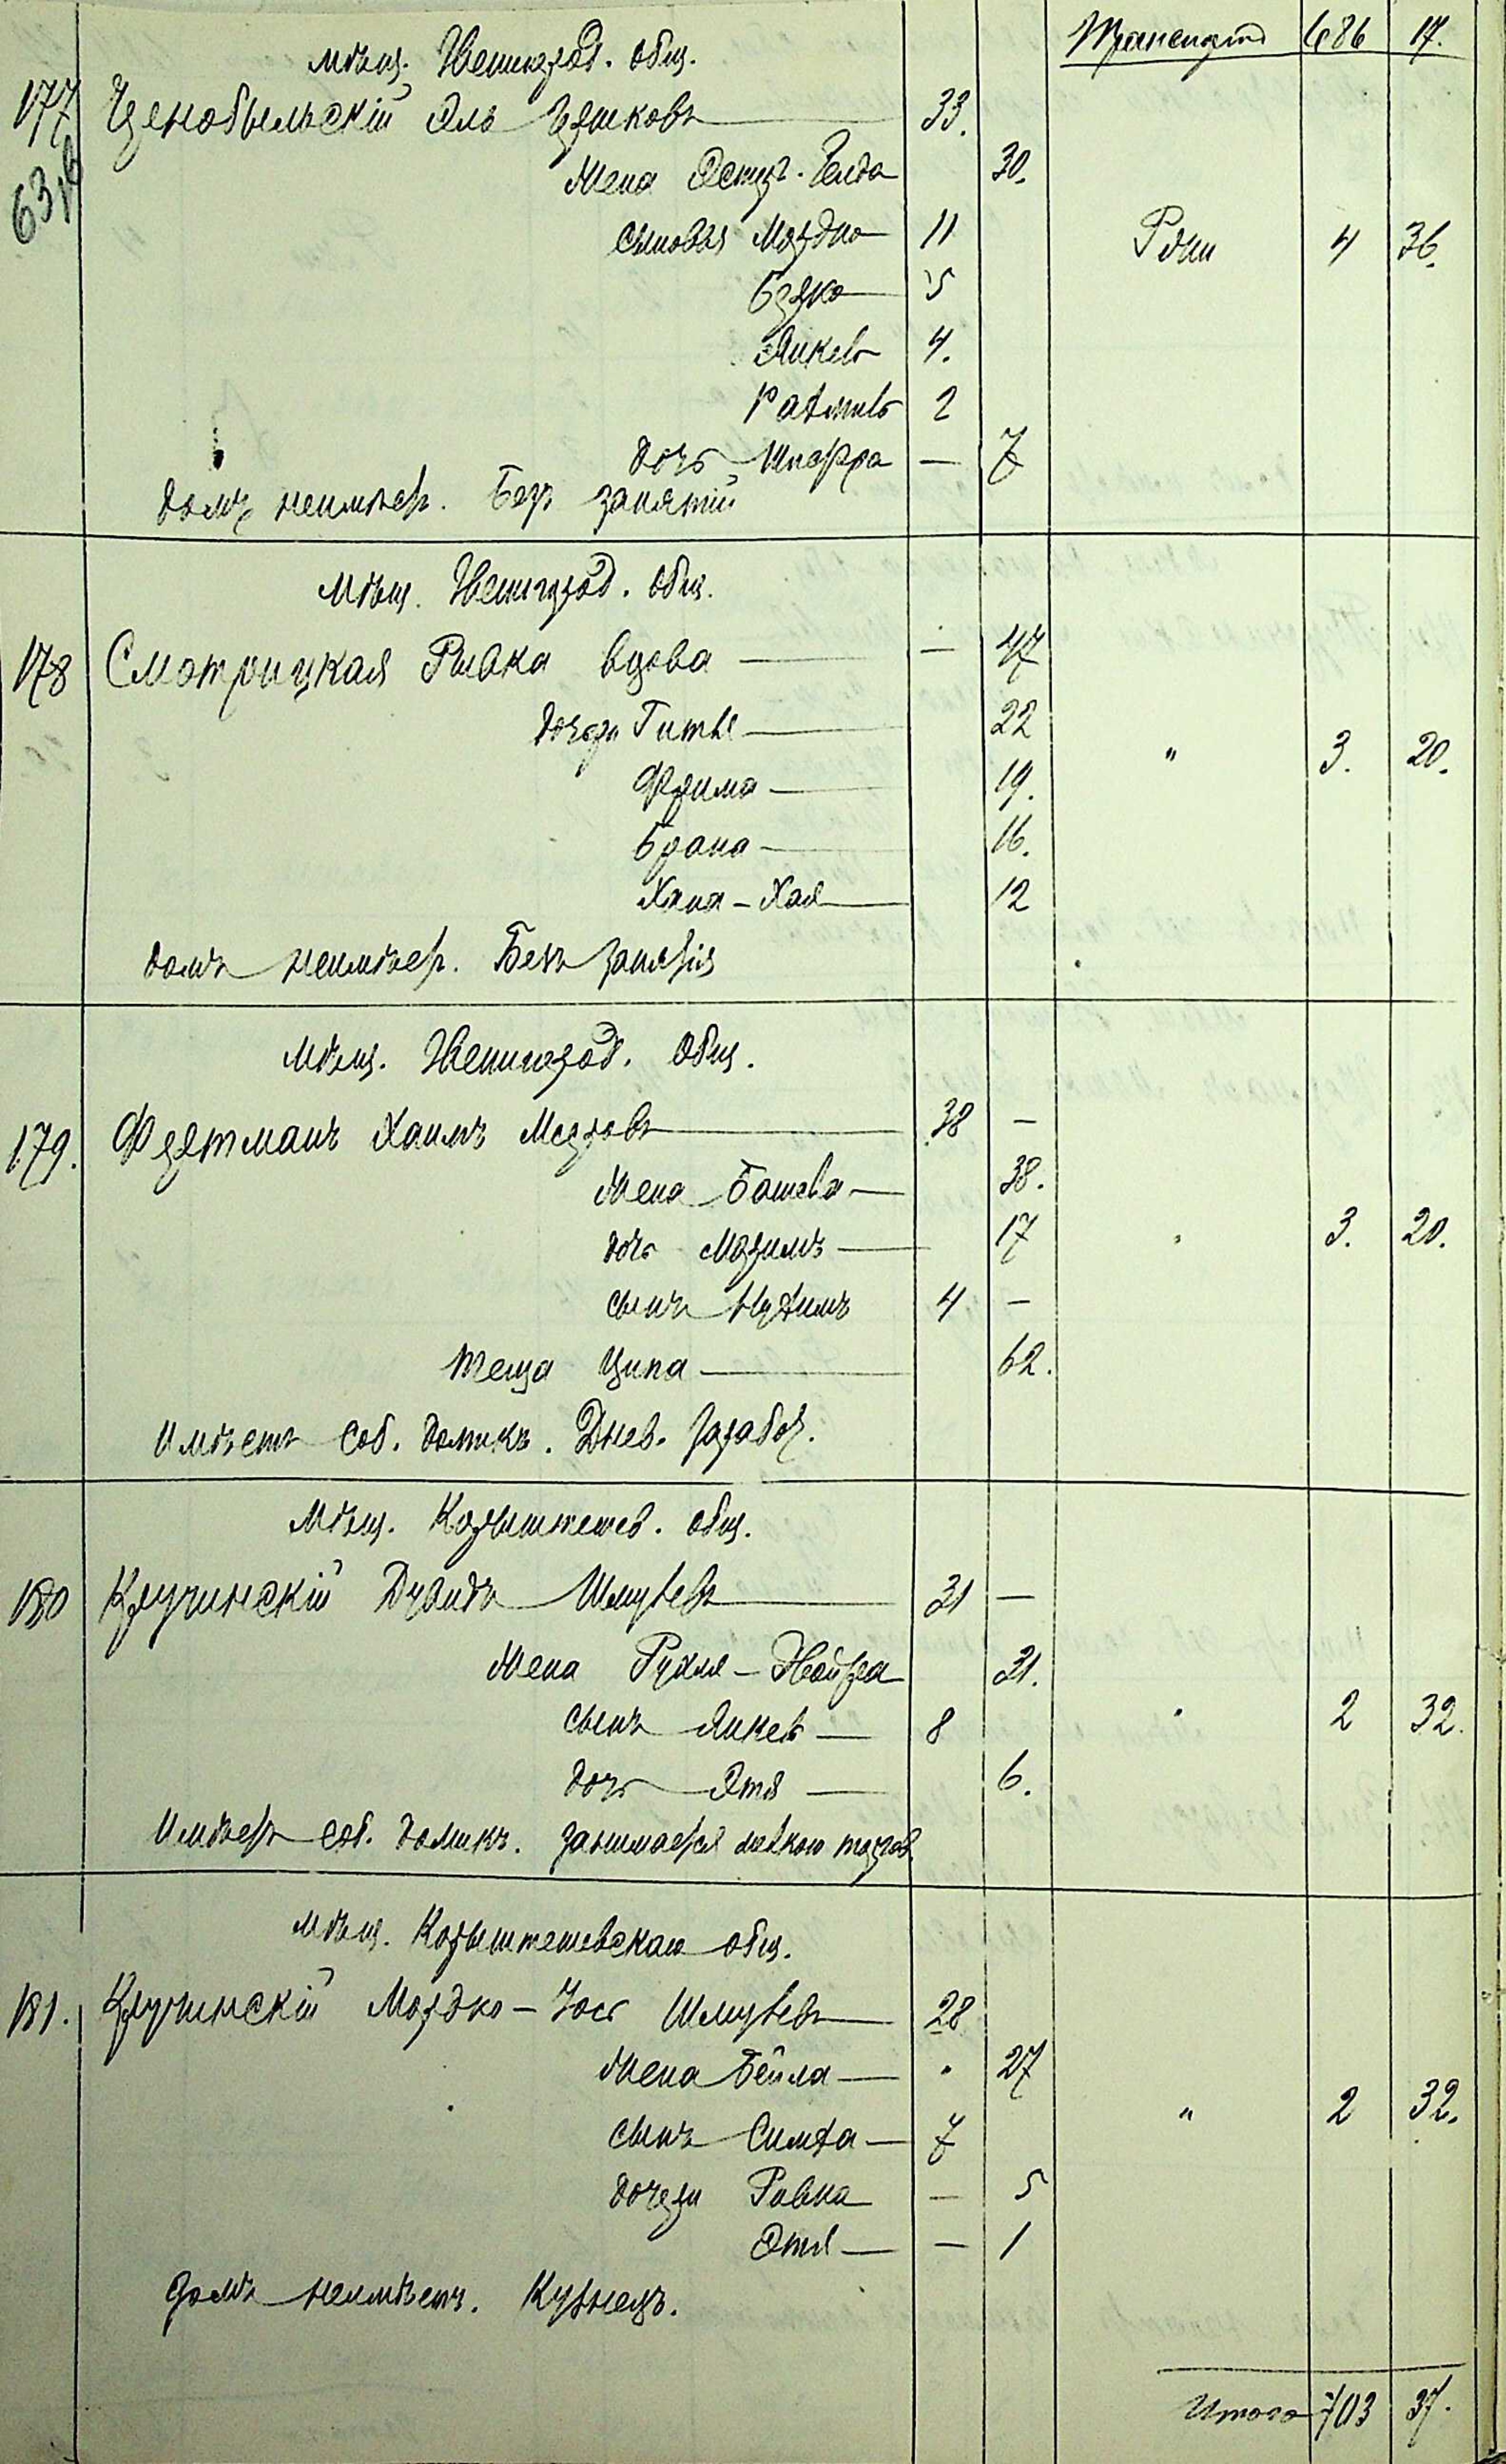 Транспортъ 686 17.
мѣщ. Звенигород. общ.
177 Чернобыльскій Эль Ершковъ 33.
63 р
жена Эстер-Голда 30.
сыновья Мордко 11 Роги 4 36.
Берко 5
Янкель 4.
Рахмиль 2
дочь Шпофра — 7
домъ неимѣет. Без занятій
мѣщ. Звенигород. общ.
178 Смотрицкая Ривка вдова — 47
дочери Гитля 22 " 3. 20.
Фрима 19.
Брана 16.
Хана-Хая 12
домъ неимѣет. Безъ занятія
мѣщ. Звенигород. общ.
179. Фертманъ Хаимъ Мееровъ 38 —
жена Башева 38.
дочь Мариимъ 17 " 3. 20.
сынъ Нухимъ 4 —
теща Ципа 62.
Имѣетъ соб. домикъ. Днев. заработ.
мѣщ. Корыштешев. общ.
180 Кручинскій Дувидъ Шмулевъ 31 —
жена Рухля-Двойра 31.
сынъ Янкель 8 " 2 32.
дочь Этя 6.
Имѣетъ соб. домикъ. занимается мѣлкою торгов.
мѣщ. Корыштешевскаго общ.
181. Кручинскій Мордко-Іось Шмулевъ 28
жена Бейла " 27
сынъ Симха 7 " 2 32.
дочери Ривка — 5
Этя — 1
домъ неимѣетъ. Кузнецъ.
Итого 703 37.